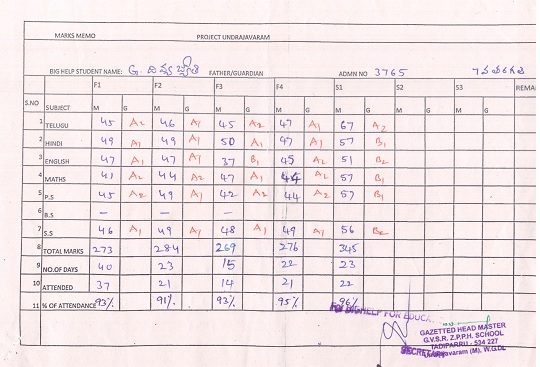 MARKS MEMO PROJECT UNDRAJAVARAM
BIG HELP STUDENT NAME: G. దివ్య జ్యోతి FATHER/GUARDIAN ADMN NO 3765 7వ తరగతి
F1 F2 F3 F4 S1 S2 S3
S.NO SUBJECT M G M G M G M G M G M G M G REMA
1 TELUGU 45 A2 46 A1 45 A2 47 A1 67 A2
2 HINDI 49 A1 49 A1 50 A1 47 A1 57 B1
3 ENGLISH 47 A1 47 A1 37 B1 45 A2 51 B2
4 MATHS 41 A2 44 A2 47 A1 44 A2 57 B1
5 P.S 45 A2 49 A1 42 A2 44 A2 57 B1
6 B.S — —
7 S.S 46 A1 49 A1 48 A1 49 A1 56 B2
8 TOTAL MARKS 273 284 269 276 345
9 NO.OF DAYS 40 23 15 22 23
10 ATTENDED 37 21 14 21 22
11 % OF ATTENDANCE 93% 91% 93% 95% 96%
FOR BIGHELP FOR EDUCA
SECRETARY
GAZETTED HEAD MASTER
G.V.S.R. Z.P.P.H. SCHOOL
TADIPARRU - 534 227
Undrajavaram (M), W.G.Dt.